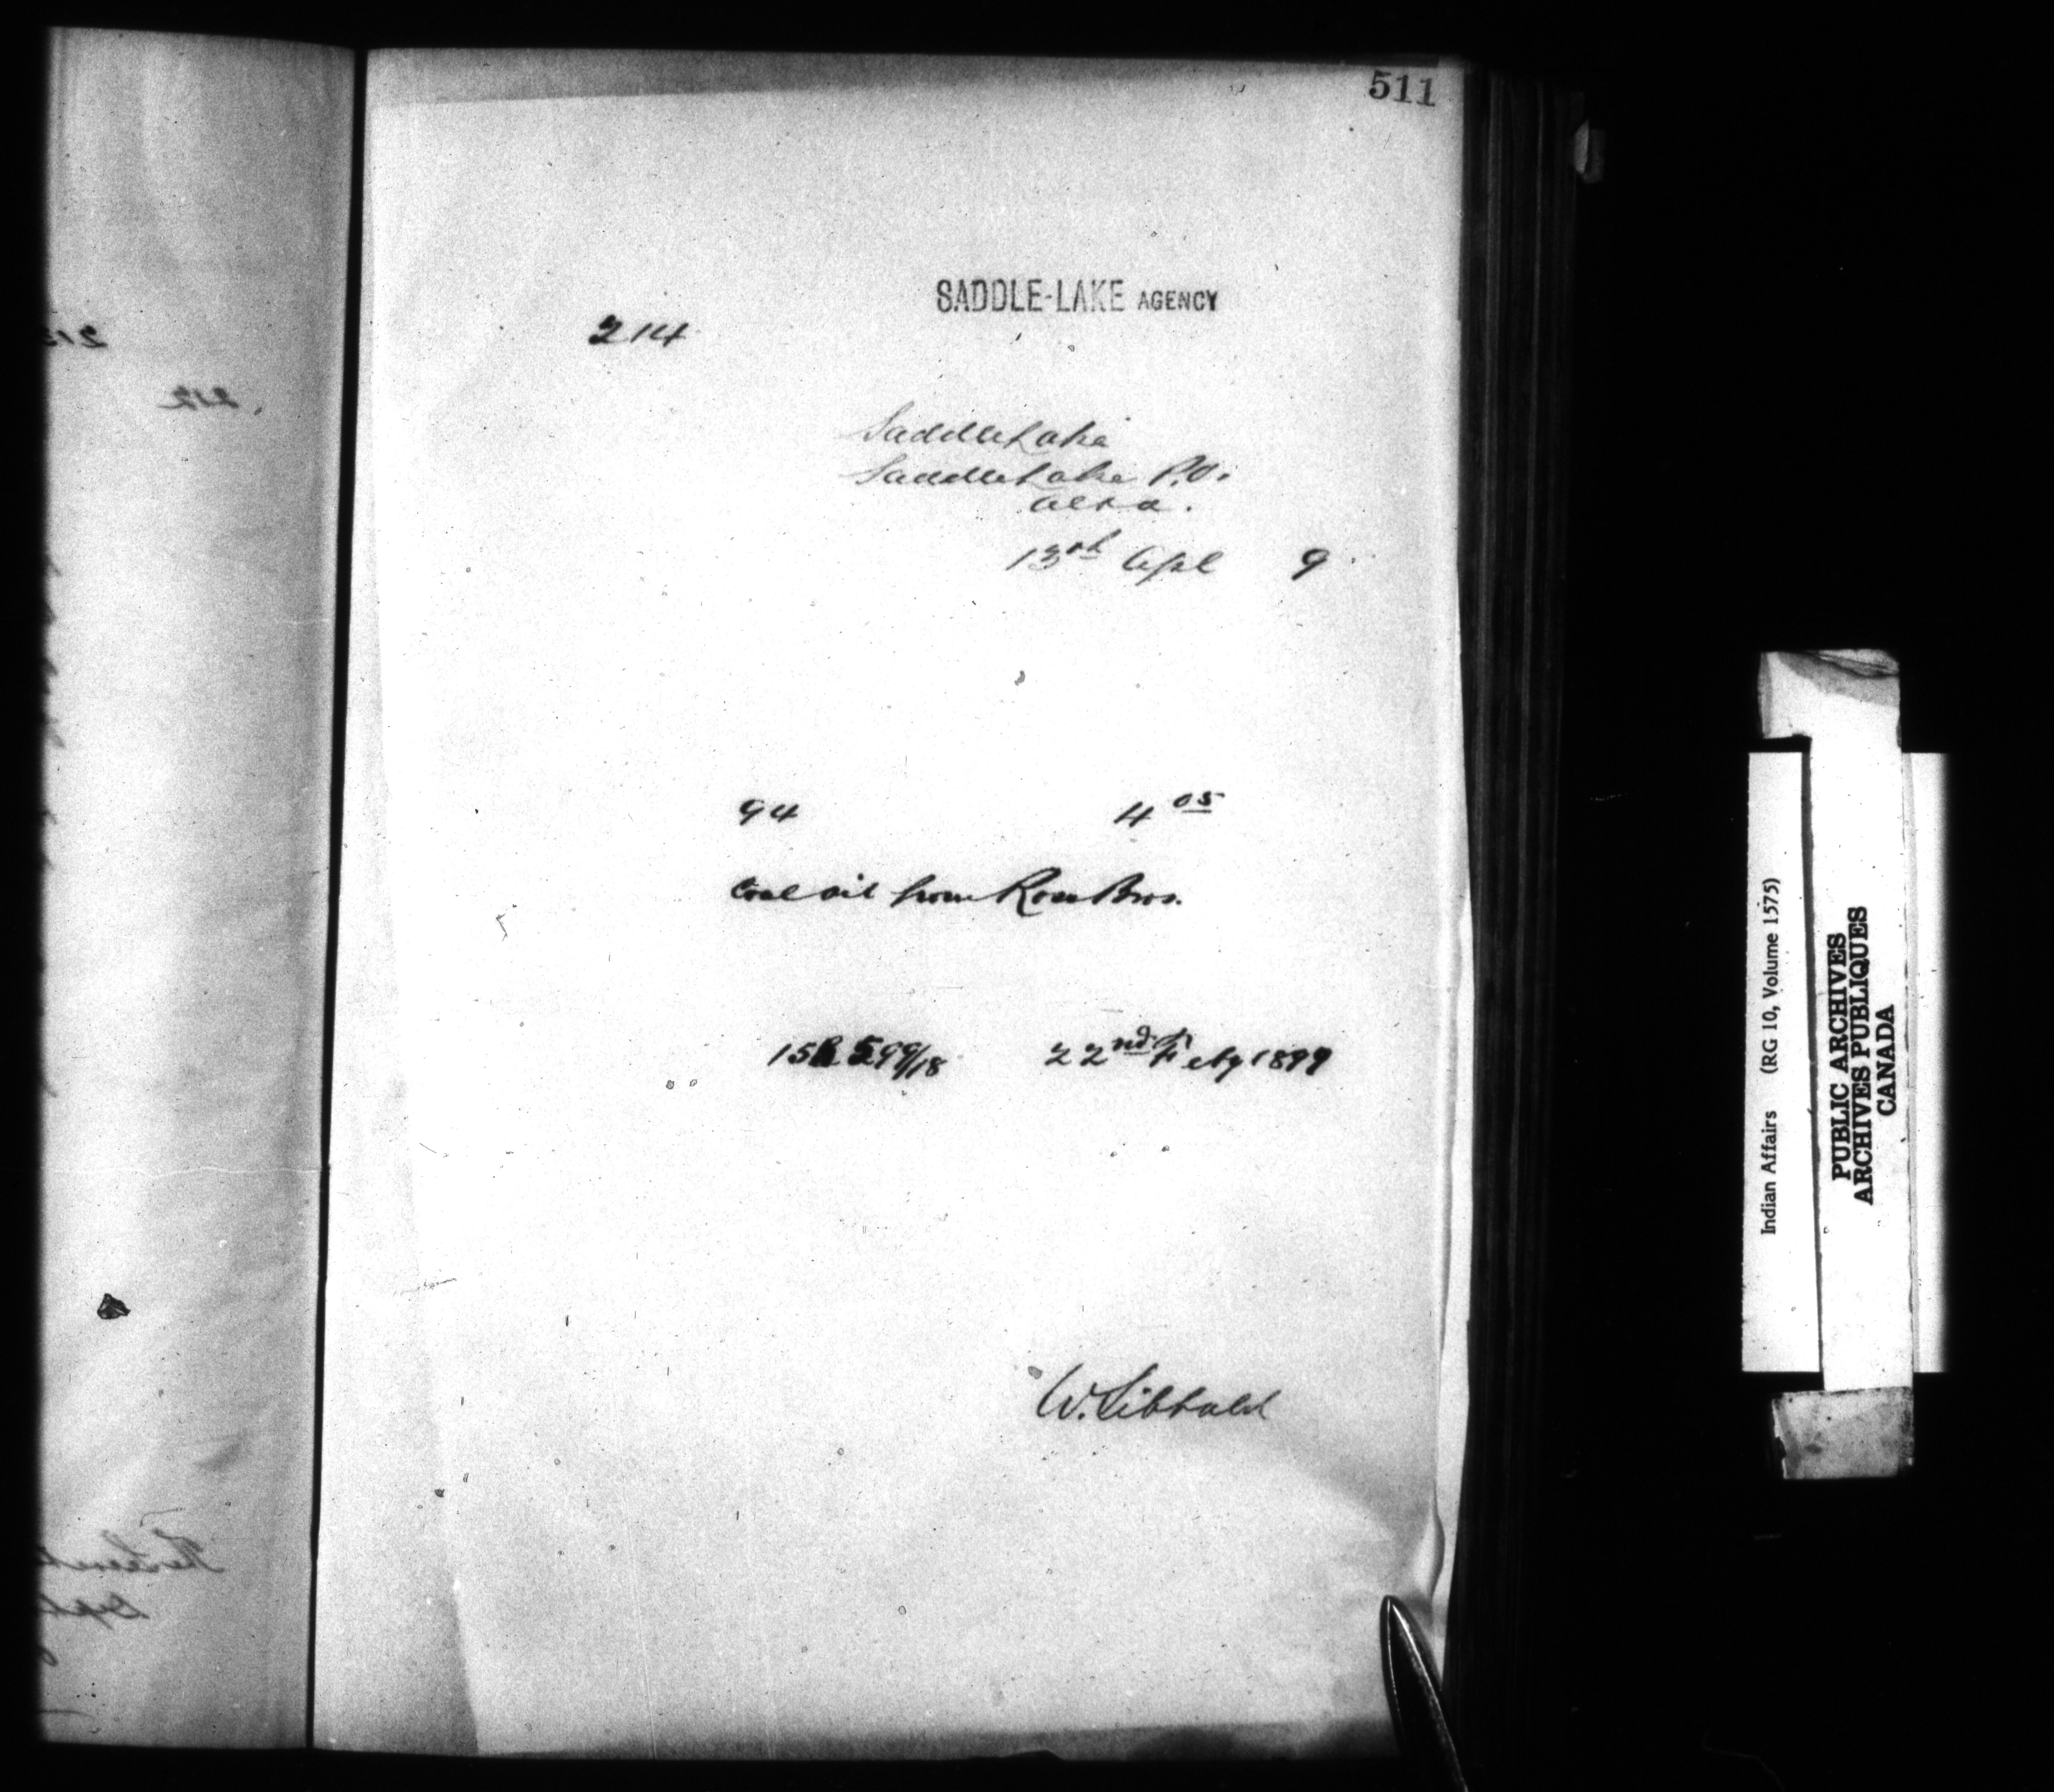 511
SADDLE-LAKE AGENCY
214
Saddle Lake
Saddle Lake P.O.
Alta.
13th Apl 9
94 4 05
Coal oil from Ross Bros.
599/18 22nd Feby 1899
W. Sibbald
212
Indian Affairs (RG 10, Volume 1575)
PUBLIC ARCHIVES
ARCHIVES PUBLIQUES
CANADA